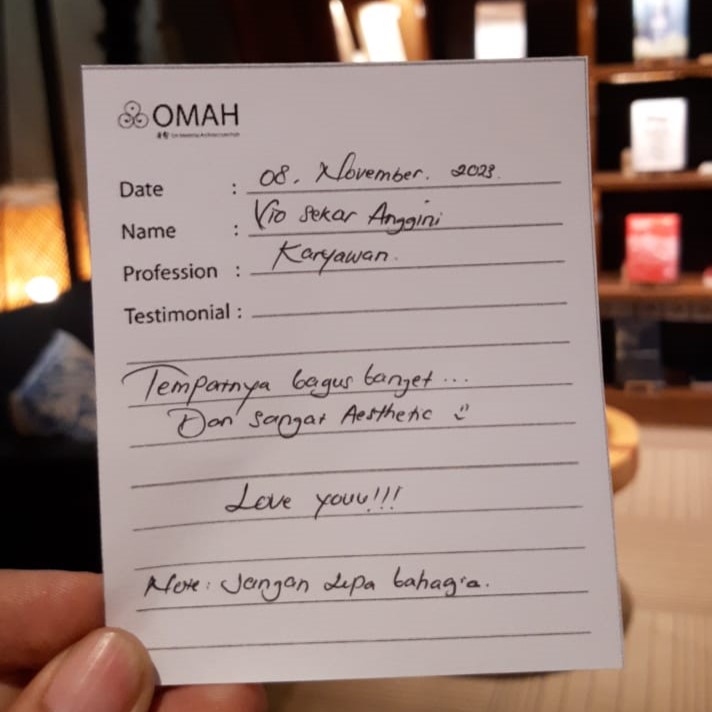 OMAH
Date : 08. November. 2023.
Name : Vio Sekar Anggini
Profession : Karyawan.
Testimonial :
Tempatnya bagus banget ...
Dan sangat Aesthetic :)
Love youu!!!
Note: Jangan Lupa bahagia.